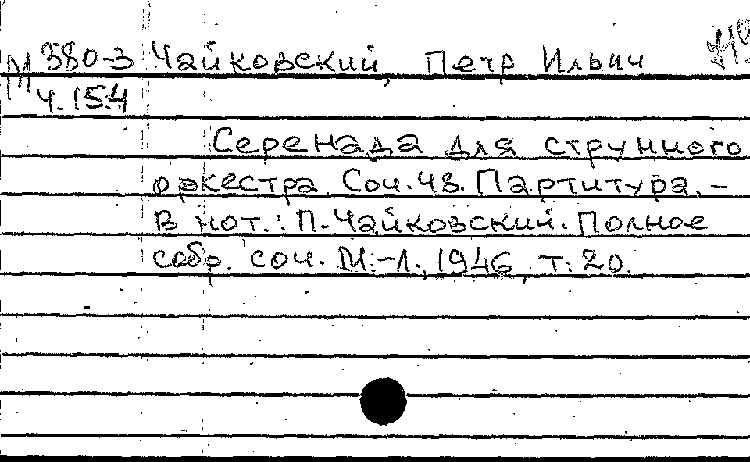 М 380-3 Чайковский, Петр Ильич
Ч.154
Серенада для струнного
оркестра. Соч. 48. Партитура. -
В нот.: П. Чайковский. Полное
собр. соч. М.-Л., 1946, т. 20.